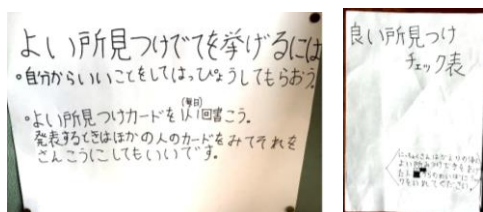 よい所見つけでてを挙げるには
。自分からいいことをしてはっぴょうしてもらおう。
。よい所見つけカードを(毎日)1人1回書こう。
発表するときはほかの人のカードをみてそれを
さんこうにしてもいいです。
良い所見つけ
チェック表